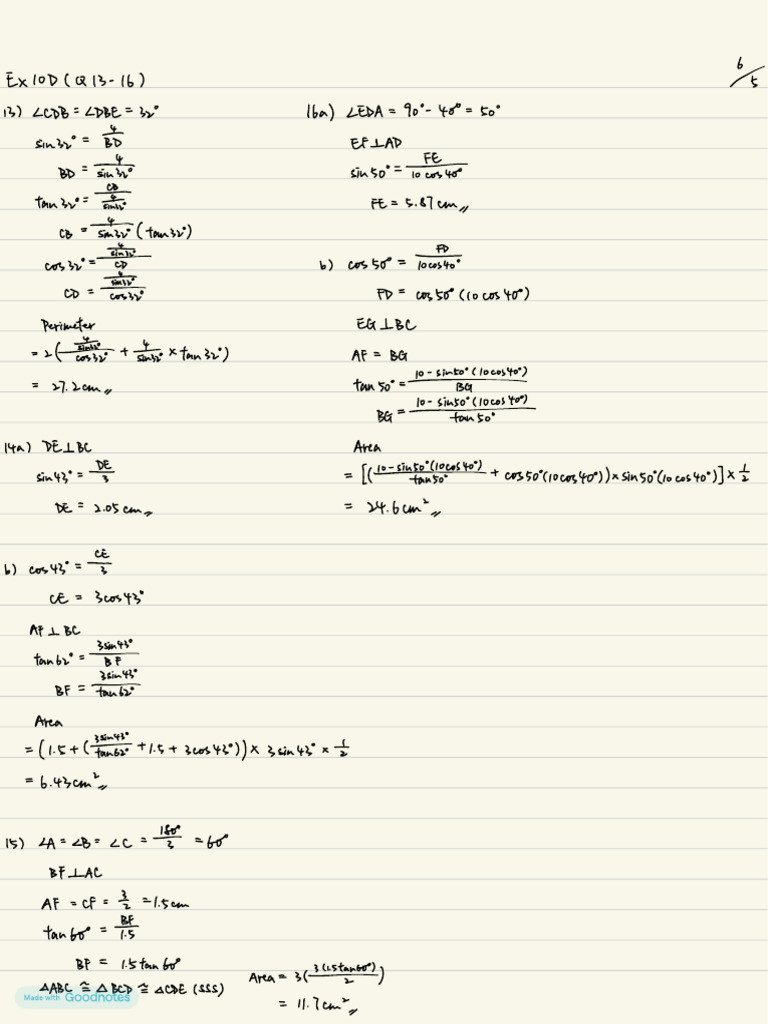 Ex 10D (Q13-16)
6/5
13) ∠CDB = ∠DBE = 32°
sin32° = 4/BD
BD = 4/sin32°
tan32° = CB/(4/sin32°)
CB = 4/sin32° (tan32°)
cos32° = (4/sin32°)/CD
CD = (4/sin32°)/cos32°
Perimeter
= 2((4/sin32°)/cos32° + 4/sin32° × tan32°)
= 27.2cm
14a) DE⊥BC
sin43° = DE/3
DE = 2.05cm
b) cos43° = CE/3
CE = 3cos43°
AF⊥BC
tan62° = 3sin43°/BF
BF = 3sin43°/tan62°
Area
= (1.5+(3sin43°/tan62° + 1.5 + 3cos43°)) × 3sin43° × 1/2
= 6.43cm²
15) ∠A = ∠B = ∠C = 180°/3 = 60°
BF⊥AC
AF = CF = 3/2 = 1.5cm
tan60° = BF/1.5
BF = 1.5tan60°
△ABC ≅ △BCD ≅ △CDE (SSS)
Area = 3(3(1.5tan60°)/2)
= 11.7cm²
16a) ∠EDA = 90° - 40° = 50°
EF⊥AD
sin50° = FE/10cos40°
FE = 5.87cm
b) cos50° = FD/10cos40°
FD = cos50°(10cos40°)
EG⊥BC
AF = BG
tan50° = 10-sin50°(10cos40°)/BG
BG = 10-sin50°(10cos40°)/tan50°
Area
= [(10-sin50°(10cos40°)/tan50° + cos50°(10cos40°))×sin50°(10cos40°)] × 1/2
= 24.6cm²
Made with Goodnotes